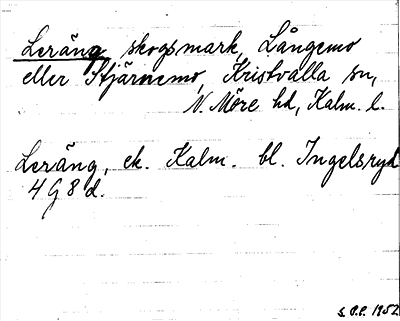 Leräng skogsmark, Långemo
eller Stjärnemo, Kristvalla sn,
N. Möre hd, Kalm. l.
Leräng, ek. Kalm. bl. Ingelsryd
4 G 8 d.
S. P.P. 1952